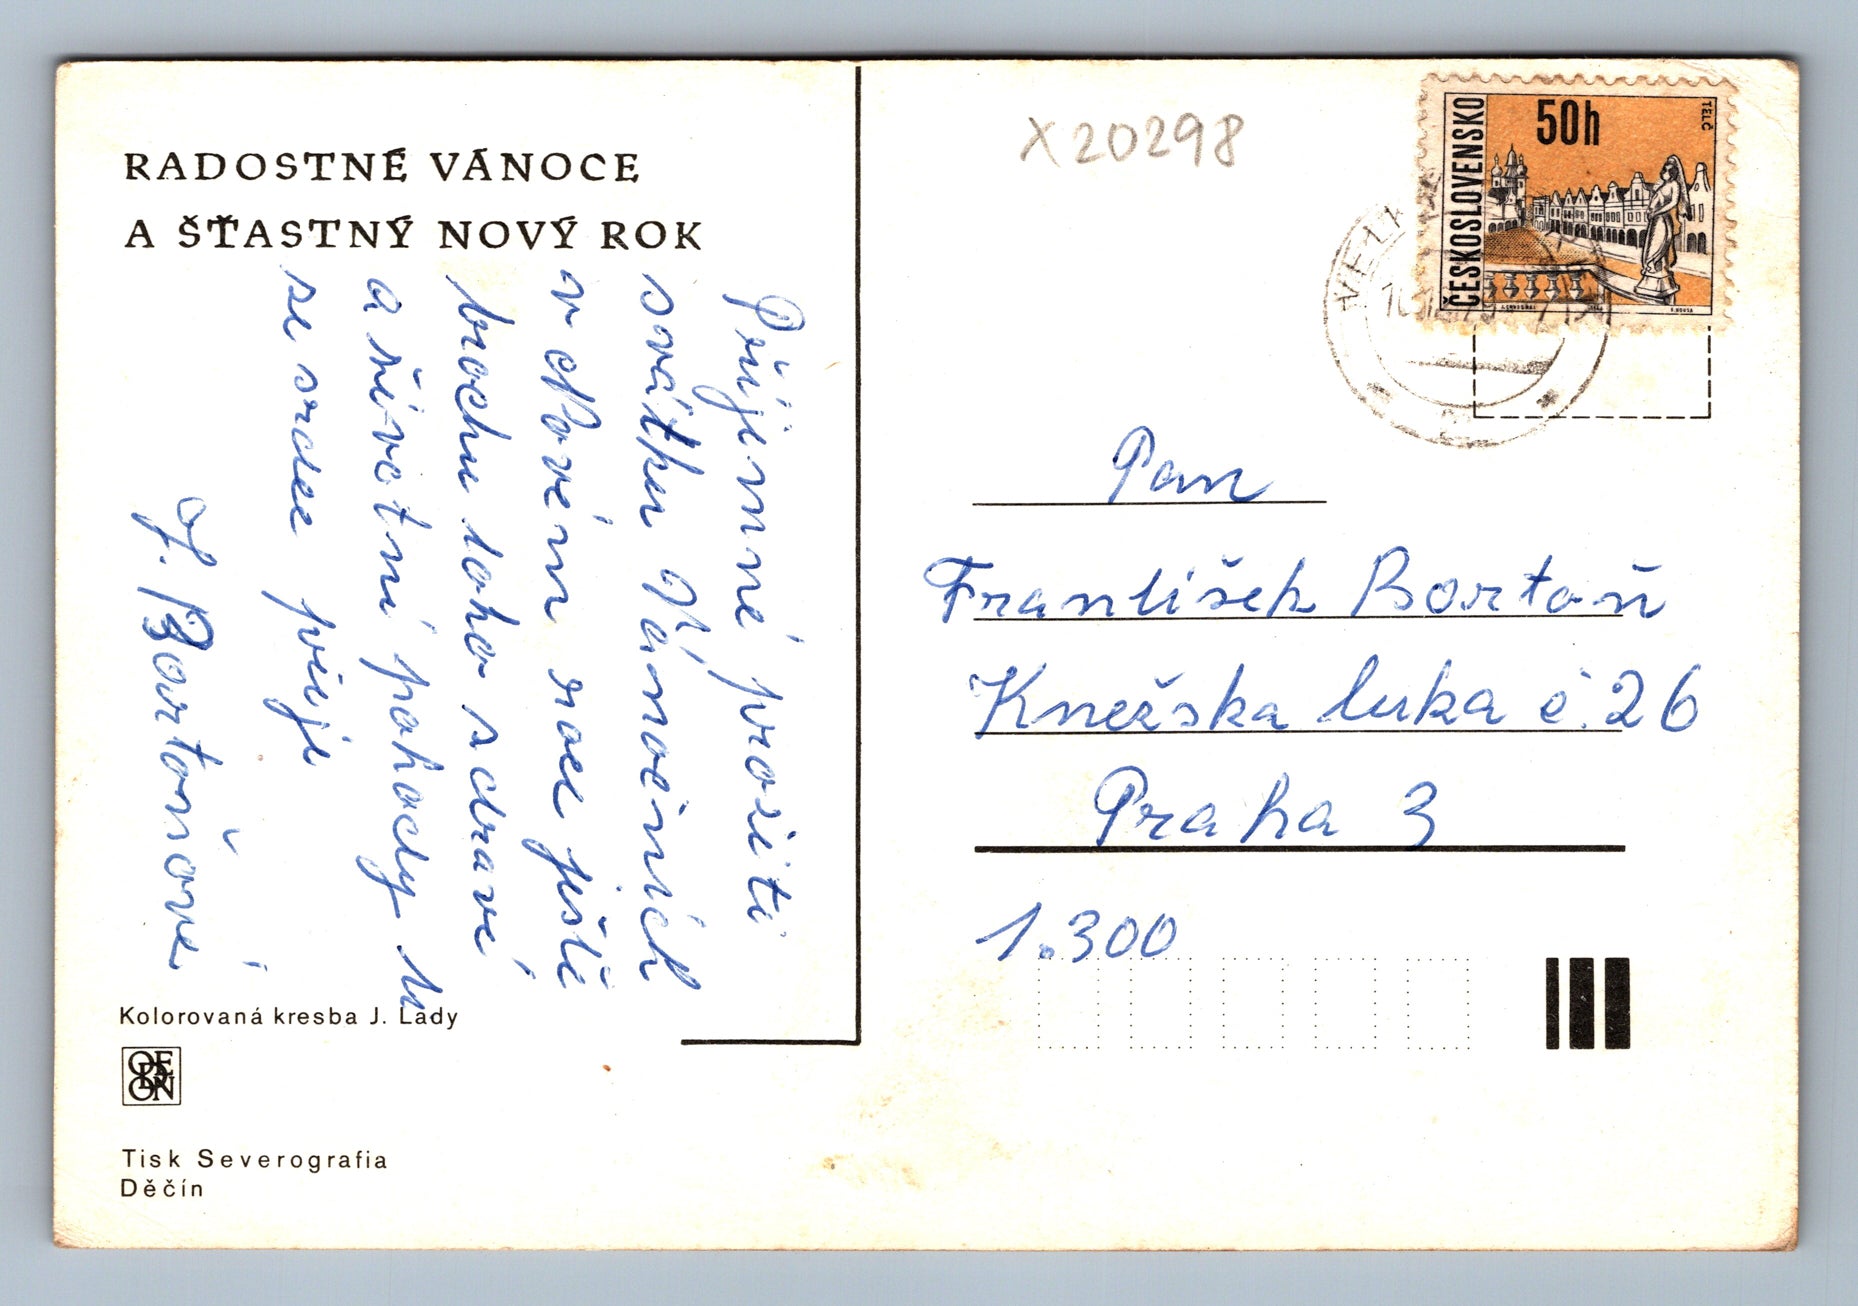 RADOSTNÉ VÁNOCE
A ŠŤASTNÝ NOVÝ ROK
Příjemné prožití
svátků Vánočních
v Novém roce ještě
trochu toho zdraví
a životní pohody Vám
ze srdce přeje
J. Bortoňová
Kolorovaná kresba J. Lady
ODEON
Tisk Severografia
Děčín
X20298
ČESKOSLOVENSKO
50h
TELČ
Pan
František Bortoň
Knežska luka č. 26
Praha 3
1.300